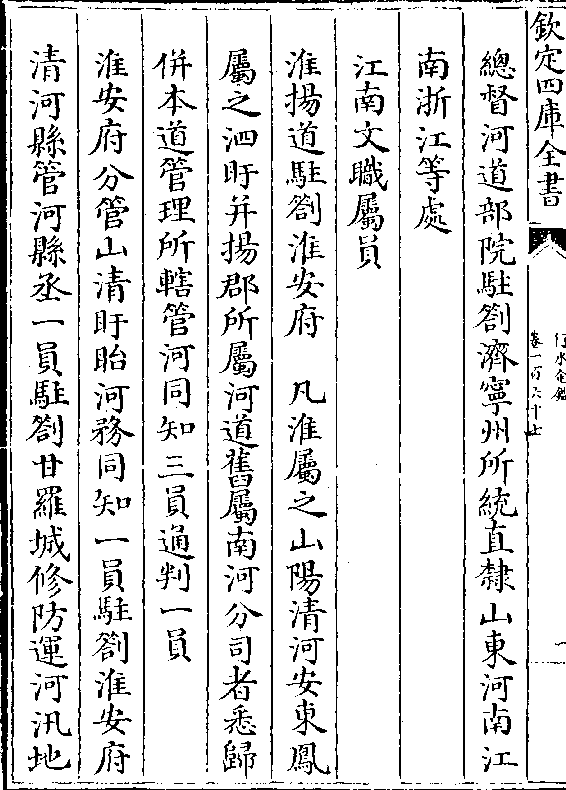 欽定四庫全書
行水金鑑
卷一百六十七
總督河道部院駐劄濟寧州所統直隸山東河南江
南浙江等處
江南文職屬員
淮揚道駐劄淮安府　凡淮屬之山陽清河安東鳳
屬之泗盱并揚郡所屬河道舊屬南河分司者悉歸
併本道管理所轄管河同知三員通判一員
淮安府分管山清盱眙河務同知一員駐劄淮安府
清河縣管河縣丞一員駐劄甘羅城修防運河汛地